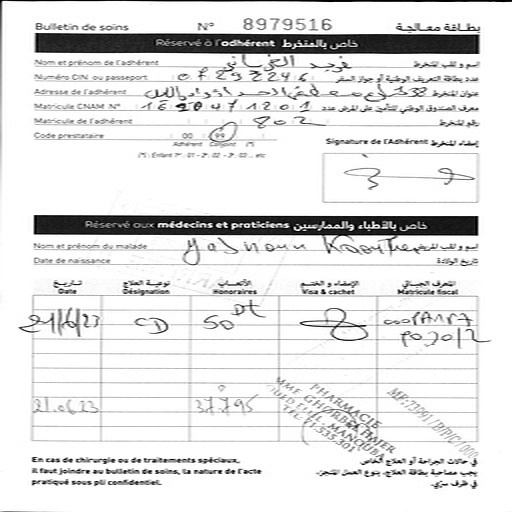 Bulletin de soins N° 8979516 بطاقة معالجة
Réservé à l'adhérent خاص بالمنخرط
Nom et prénom de l'adhérent فريد اسم و لقب المنخرط
Numéro CIN ou passeport 07297246 عدد بطاقة التعريف الوطنية أو جواز السفر
Adresse de l'adhérent عنوان المنخرط
Matricule CNAM N° معرف الصندوق الوطني للتأمين على المرض عدد
Matricule de l'adhérent 802 رقم المنخرط
Code prestataire 00 99
Adhérent Conjoint (*)
(*) : Enfant 1er : 01 - 2e : 02 - 3e : 03 ... etc
Signature de l'Adhérent إمضاء المنخرط
Réservé aux médecins et praticiens خاص بالأطباء والممارسين
Nom et prénom du malade اسم و لقب المريض
Date de naissance تاريخ الولادة
تاريخ نوعية العلاج الأتعاب الإمضاء و الختم المعرف الجبائي
Date Désignation Honoraires Visa & cachet Matricule fiscal
21/6/23 CD 50 Dt
21.06.23 37.795
PHARMACIE
MME GHORBEL
OUED ELLIL MANOUBA
TEL: 71.535.301
En cas de chirurgie ou de traitements spéciaux,
il faut joindre au bulletin de soins, la nature de l'acte
pratiqué sous pli confidentiel.
في حالات الجراحة أو العلاج الخاص
يجب مصاحبة بطاقة العلاج، بنوع العمل المنجز،
في ظرف سري.